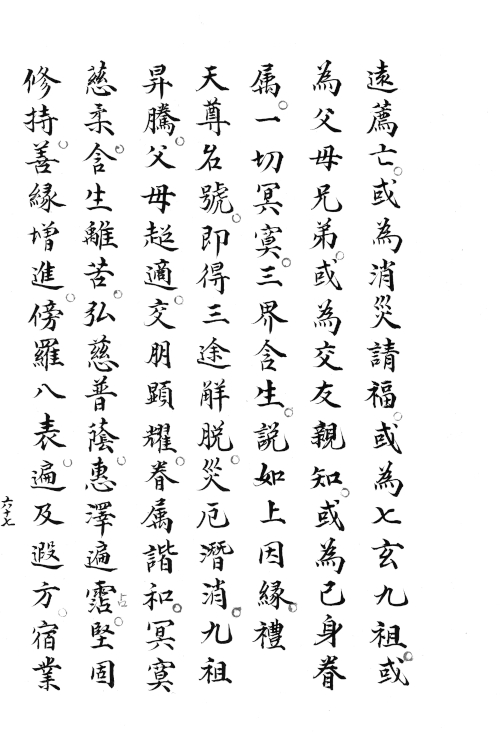 遠薦亡。或為消災請福。或為七玄九祖。或
為父母兄弟。或為交友親知。或為己身眷
属。一切冥寞。三界含生。説如上因縁。禮
天尊名號。即得三途解脱。災厄潛消。九祖
昇騰。父母超適。交朋顕耀。眷属諧和。冥寞
慈柔。含生離苦。弘慈普蔭。惠澤遍霑。堅固
修持。善縁增進。傍羅八表。遍及遐方。宿業
六十七